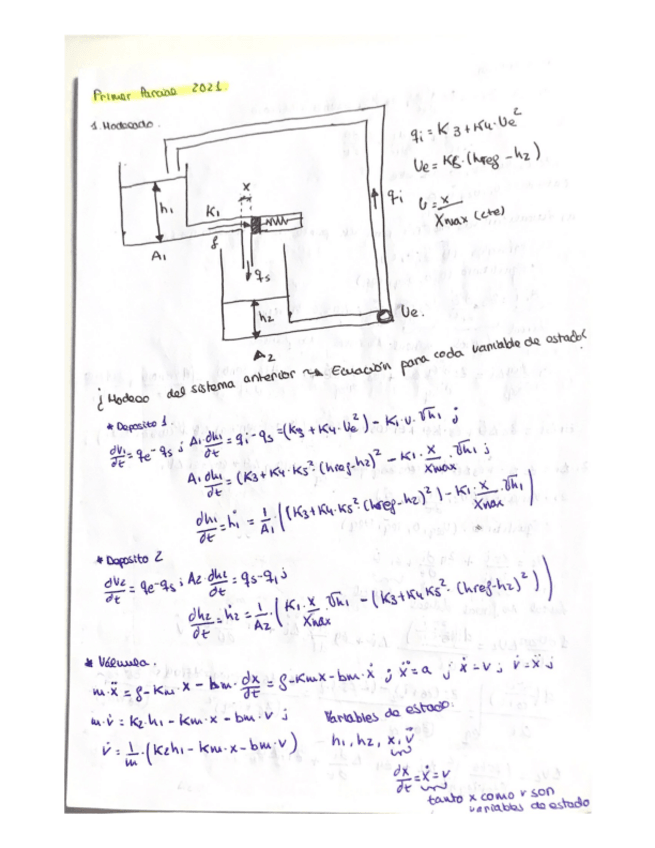 Primer Parcial 2021.
1. Modelado.
qi = K3 + K4 · Ue²
Ue = K5 · (href - h2)
U = x / Xmax (cte)
x
h1
K1
f
A1
qs
qi
h2
Ue.
A2
¿Modelo del sistema anterior ⇝ Ecuación para cada variable de estado?
* Deposito 1.
dV1/dt = qe - qs ; A1 dh1/dt = qi - qs = (K3 + K4 · Ue²) - K1 · U · √h1 ;
A1 dh1/dt = (K3 + K4 · K5² · (href - h2)² - K1 · x/Xmax · √h1 ;
dh1/dt = ḣ1 = 1/A1 · ((K3 + K4 · K5² · (href - h2)²) - K1 · x/Xmax · √h1)
* Deposito 2
dV2/dt = qe - qs ; A2 · dh2/dt = qs - qi ;
dh2/dt = ḣ2 = 1/A2 · (K1 · x/Xmax · √h1 - (K3 + K4 K5² · (href - h2)²))
* Válvula.
m · ẍ = f - Km · x - bm · dx/dt = f - Km x - bm · ẋ ; ẍ = a ; ẋ = v ; v̇ = ẍ ;
m · v̇ = K2 · h1 - Km · x - bm · v ;
Variables de estado:
v̇ = 1/m · (K2 h1 - Km · x - bm · v)
h1, h2, x, v
dx/dt = ẋ = v
tanto x como v son
variables de estado